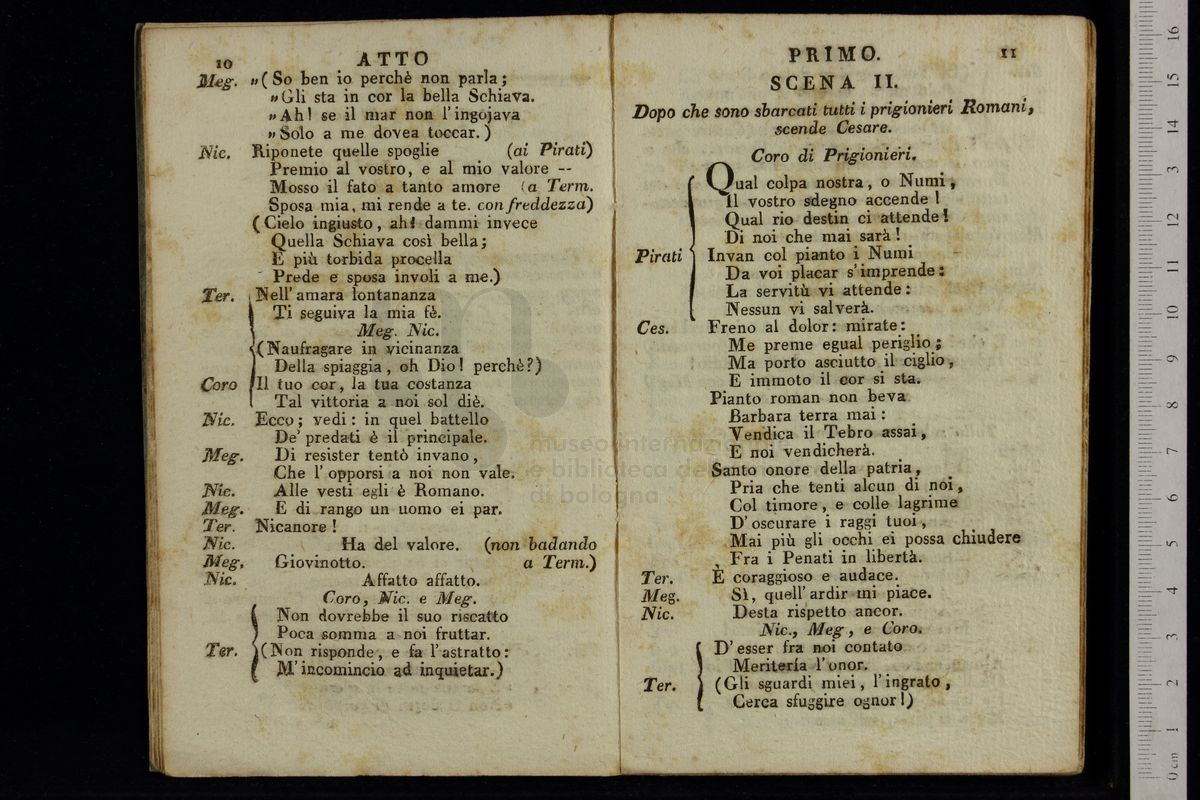 10
ATTO
Meg. „(So ben io perchè non parla;
„Gli sta in cor la bella Schiava.
„Ah! se il mar non l'ingojava
„Solo a me dovea toccar.)
Nic. Riponete quelle spoglie (ai Pirati)
Premio al vostro, e al mio valore --
Mosso il fato a tanto amore (a Term.
Sposa mia, mi rende a te. con freddezza)
(Cielo ingiusto, ah! dammi invece
Quella Schiava così bella;
E più torbida procella
Prede e sposa involi a me.)
Ter. Nell'amara lontananza
Ti seguiva la mia fè.
Meg. Nic.
(Naufragare in vicinanza
Della spiaggia, oh Dio! perchè?)
Coro Il tuo cor, la tua costanza
Tal vittoria a noi sol diè.
Nic. Ecco; vedi: in quel battello
De' predati è il principale.
Meg. Di resister tentò invano,
Che l'opporsi a noi non vale.
Nic. Alle vesti egli è Romano.
Meg. E di rango un uomo ei par.
Ter. Nicanore!
Nic. Ha del valore. (non badando
Meg. Giovinotto. a Term.)
Nic. Affatto affatto.
Coro, Nic. e Meg.
Non dovrebbe il suo riscatto
Poca somma a noi fruttar.
Ter. (Non risponde, e fa l'astratto:
M'incomincio ad inquietar.)
PRIMO.
11
SCENA II.
Dopo che sono sbarcati tutti i prigionieri Romani,
scende Cesare.
Coro di Prigionieri.
Qual colpa nostra, o Numi,
Il vostro sdegno accende!
Qual rio destin ci attende!
Di noi che mai sarà!
Pirati Invan col pianto i Numi
Da voi placar s'imprende:
La servitù vi attende:
Nessun vi salverà.
Ces. Freno al dolor: mirate:
Me preme egual periglio;
Ma porto asciutto il ciglio,
E immoto il cor si sta.
Pianto roman non beva
Barbara terra mai:
Vendica il Tebro assai,
E noi vendicherà.
Santo onore della patria,
Pria che tenti alcun di noi,
Col timore, e colle lagrime
D'oscurare i raggi tuoi,
Mai più gli occhi ei possa chiudere
Fra i Penati in libertà.
Ter. È coraggioso e audace.
Meg. Sì, quell'ardir mi piace.
Nic. Desta rispetto ancor.
Nic., Meg, e Coro.
D'esser fra noi contato
Meritería l'onor.
Ter. (Gli sguardi miei, l'ingrato,
Cerca sfuggire ognor!)
museo internazionale
e biblioteca de
di bologna
0 cm 1 2 3 4 5 6 7 8 9 10 11 12 13 14 15 16